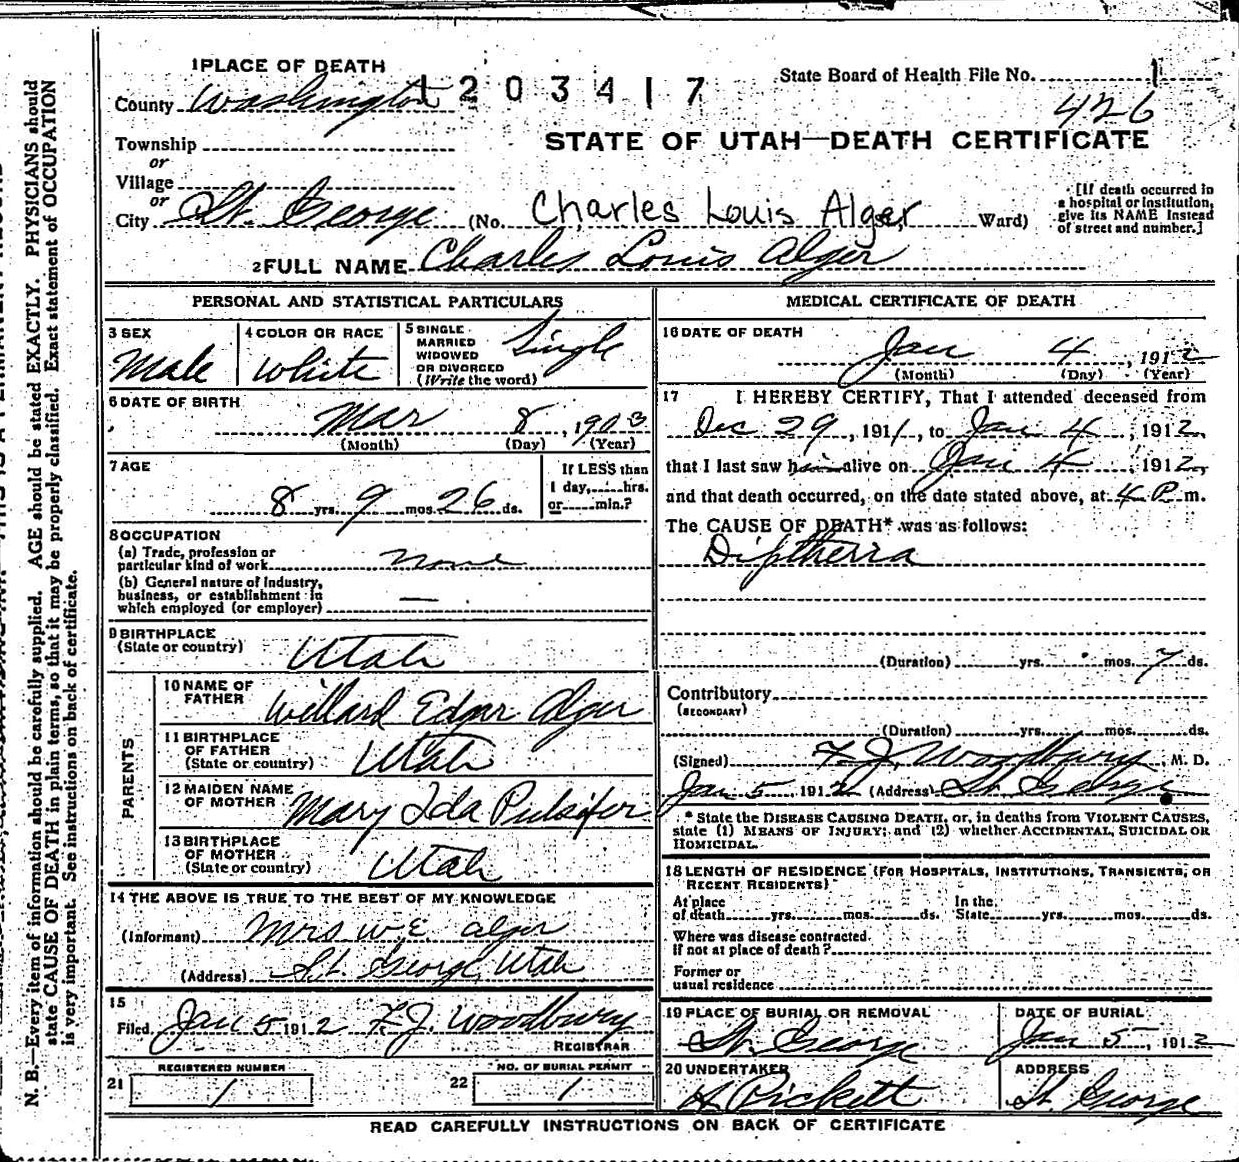 1 PLACE OF DEATH
County Washington
1203417
State Board of Health File No. 1
426
STATE OF UTAH—DEATH CERTIFICATE
Township
or
Village
or
City St. George (No. Charles Louis Alger Ward)
[If death occurred in
a hospital or institution,
give its NAME instead
of street and number.]
2 FULL NAME Charles Louis Alger
PERSONAL AND STATISTICAL PARTICULARS
3 SEX
Male
4 COLOR OR RACE
White
5 SINGLE
MARRIED
WIDOWED
OR DIVORCED
(Write the word)
Single
6 DATE OF BIRTH
Mar 8, 1903
(Month) (Day) (Year)
7 AGE
8 yrs. 9 mos. 26 ds.
If LESS than
1 day,......hrs.
or......min.?
8 OCCUPATION
(a) Trade, profession or
particular kind of work none
(b) General nature of Industry,
business, or establishment in
which employed (or employer) —
9 BIRTHPLACE
(State or country) Utah
PARENTS
10 NAME OF
FATHER Willard Edgar Alger
11 BIRTHPLACE
OF FATHER
(State or country) Utah
12 MAIDEN NAME
OF MOTHER Mary Ida Pulsifer
13 BIRTHPLACE
OF MOTHER
(State or country) Utah
14 THE ABOVE IS TRUE TO THE BEST OF MY KNOWLEDGE
(Informant) Mrs W E. Alger
(Address) St. George, Utah
15
Filed Jan 5 1912 F. J. Woodbury
REGISTRAR
REGISTERED NUMBER
21 1
NO. OF BURIAL PERMIT
22 1
MEDICAL CERTIFICATE OF DEATH
16 DATE OF DEATH
Jan 4, 1912
(Month) (Day) (Year)
17 I HEREBY CERTIFY, That I attended deceased from
Dec 29, 1911, to Jan 4, 1912,
that I last saw him alive on Jan 4, 1912,
and that death occurred, on the date stated above, at 4 P. m.
The CAUSE OF DEATH* was as follows:
Diptheria
(Duration) yrs. mos. 7 ds.
Contributory
(SECONDARY)
(Duration) yrs. mos. ds.
(Signed) F. J. Woodbury, M. D.
Jan 5 1912 (Address) St. George
* State the DISEASE CAUSING DEATH, or, in deaths from VIOLENT CAUSES,
state (1) MEANS OF INJURY; and (2) whether ACCIDENTAL, SUICIDAL OR
HOMICIDAL.
18 LENGTH OF RESIDENCE (FOR HOSPITALS, INSTITUTIONS, TRANSIENTS, OR
RECENT RESIDENTS)
At place
of death......yrs......mos......ds.
In the
State......yrs......mos......ds.
Where was disease contracted
If not at place of death?
Former or
usual residence
19 PLACE OF BURIAL OR REMOVAL
St. George
DATE OF BURIAL
Jan 5, 1912
20 UNDERTAKER
Pickett
ADDRESS
St. George
READ CAREFULLY INSTRUCTIONS ON BACK OF CERTIFICATE
N. B.—Every item of information should be carefully supplied. AGE should be stated EXACTLY. PHYSICIANS should
state CAUSE OF DEATH in plain terms, so that it may be properly classified. Exact statement of OCCUPATION
is very important. See instructions on back of certificate.